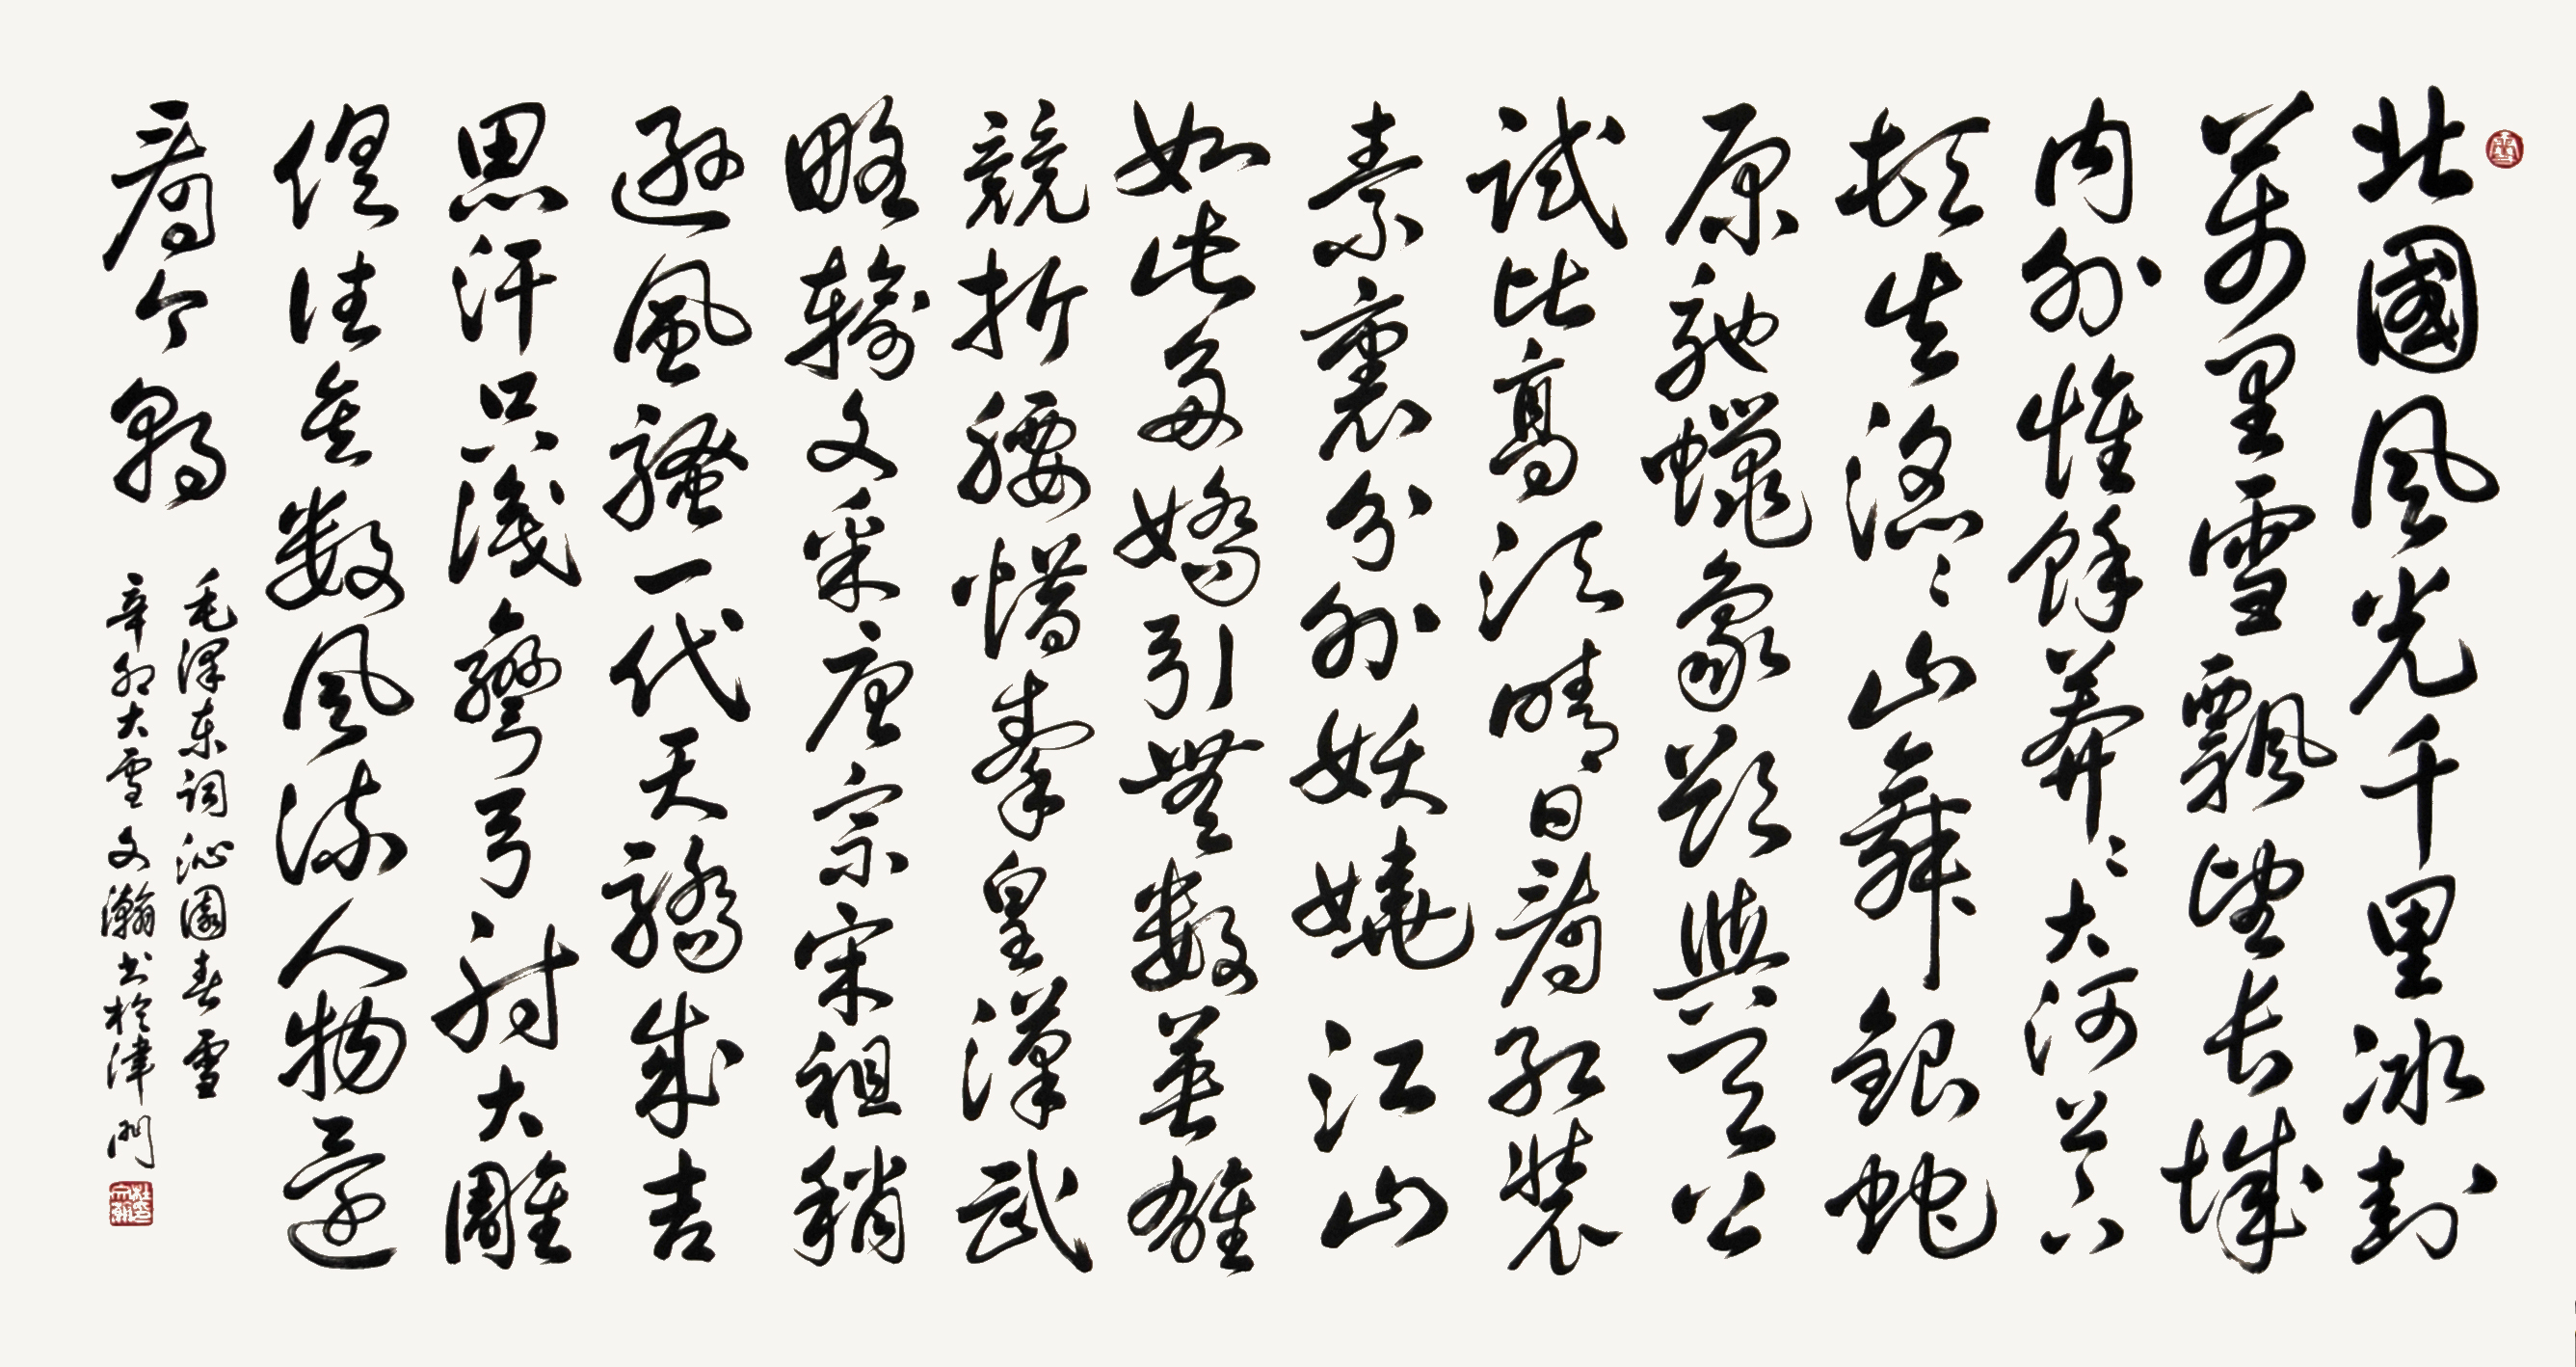 北國风光千里冰封
萬里雪飄望长城
内外惟餘莽〻大河上下
顿失滔〻山舞銀蛇
原驰蠟象欲與天公
试比高须晴日看红装
素裹分外妖娆江山
如此多娇引無数英雄
競折腰惜秦皇漢武
略輸文采唐宗宋祖稍
逊風骚一代天骄成吉
思汗只識彎弓射大雕
俱往矣数风流人物還
看今朝
毛泽东词沁園春雪
辛卯大雪文瀚书於津门